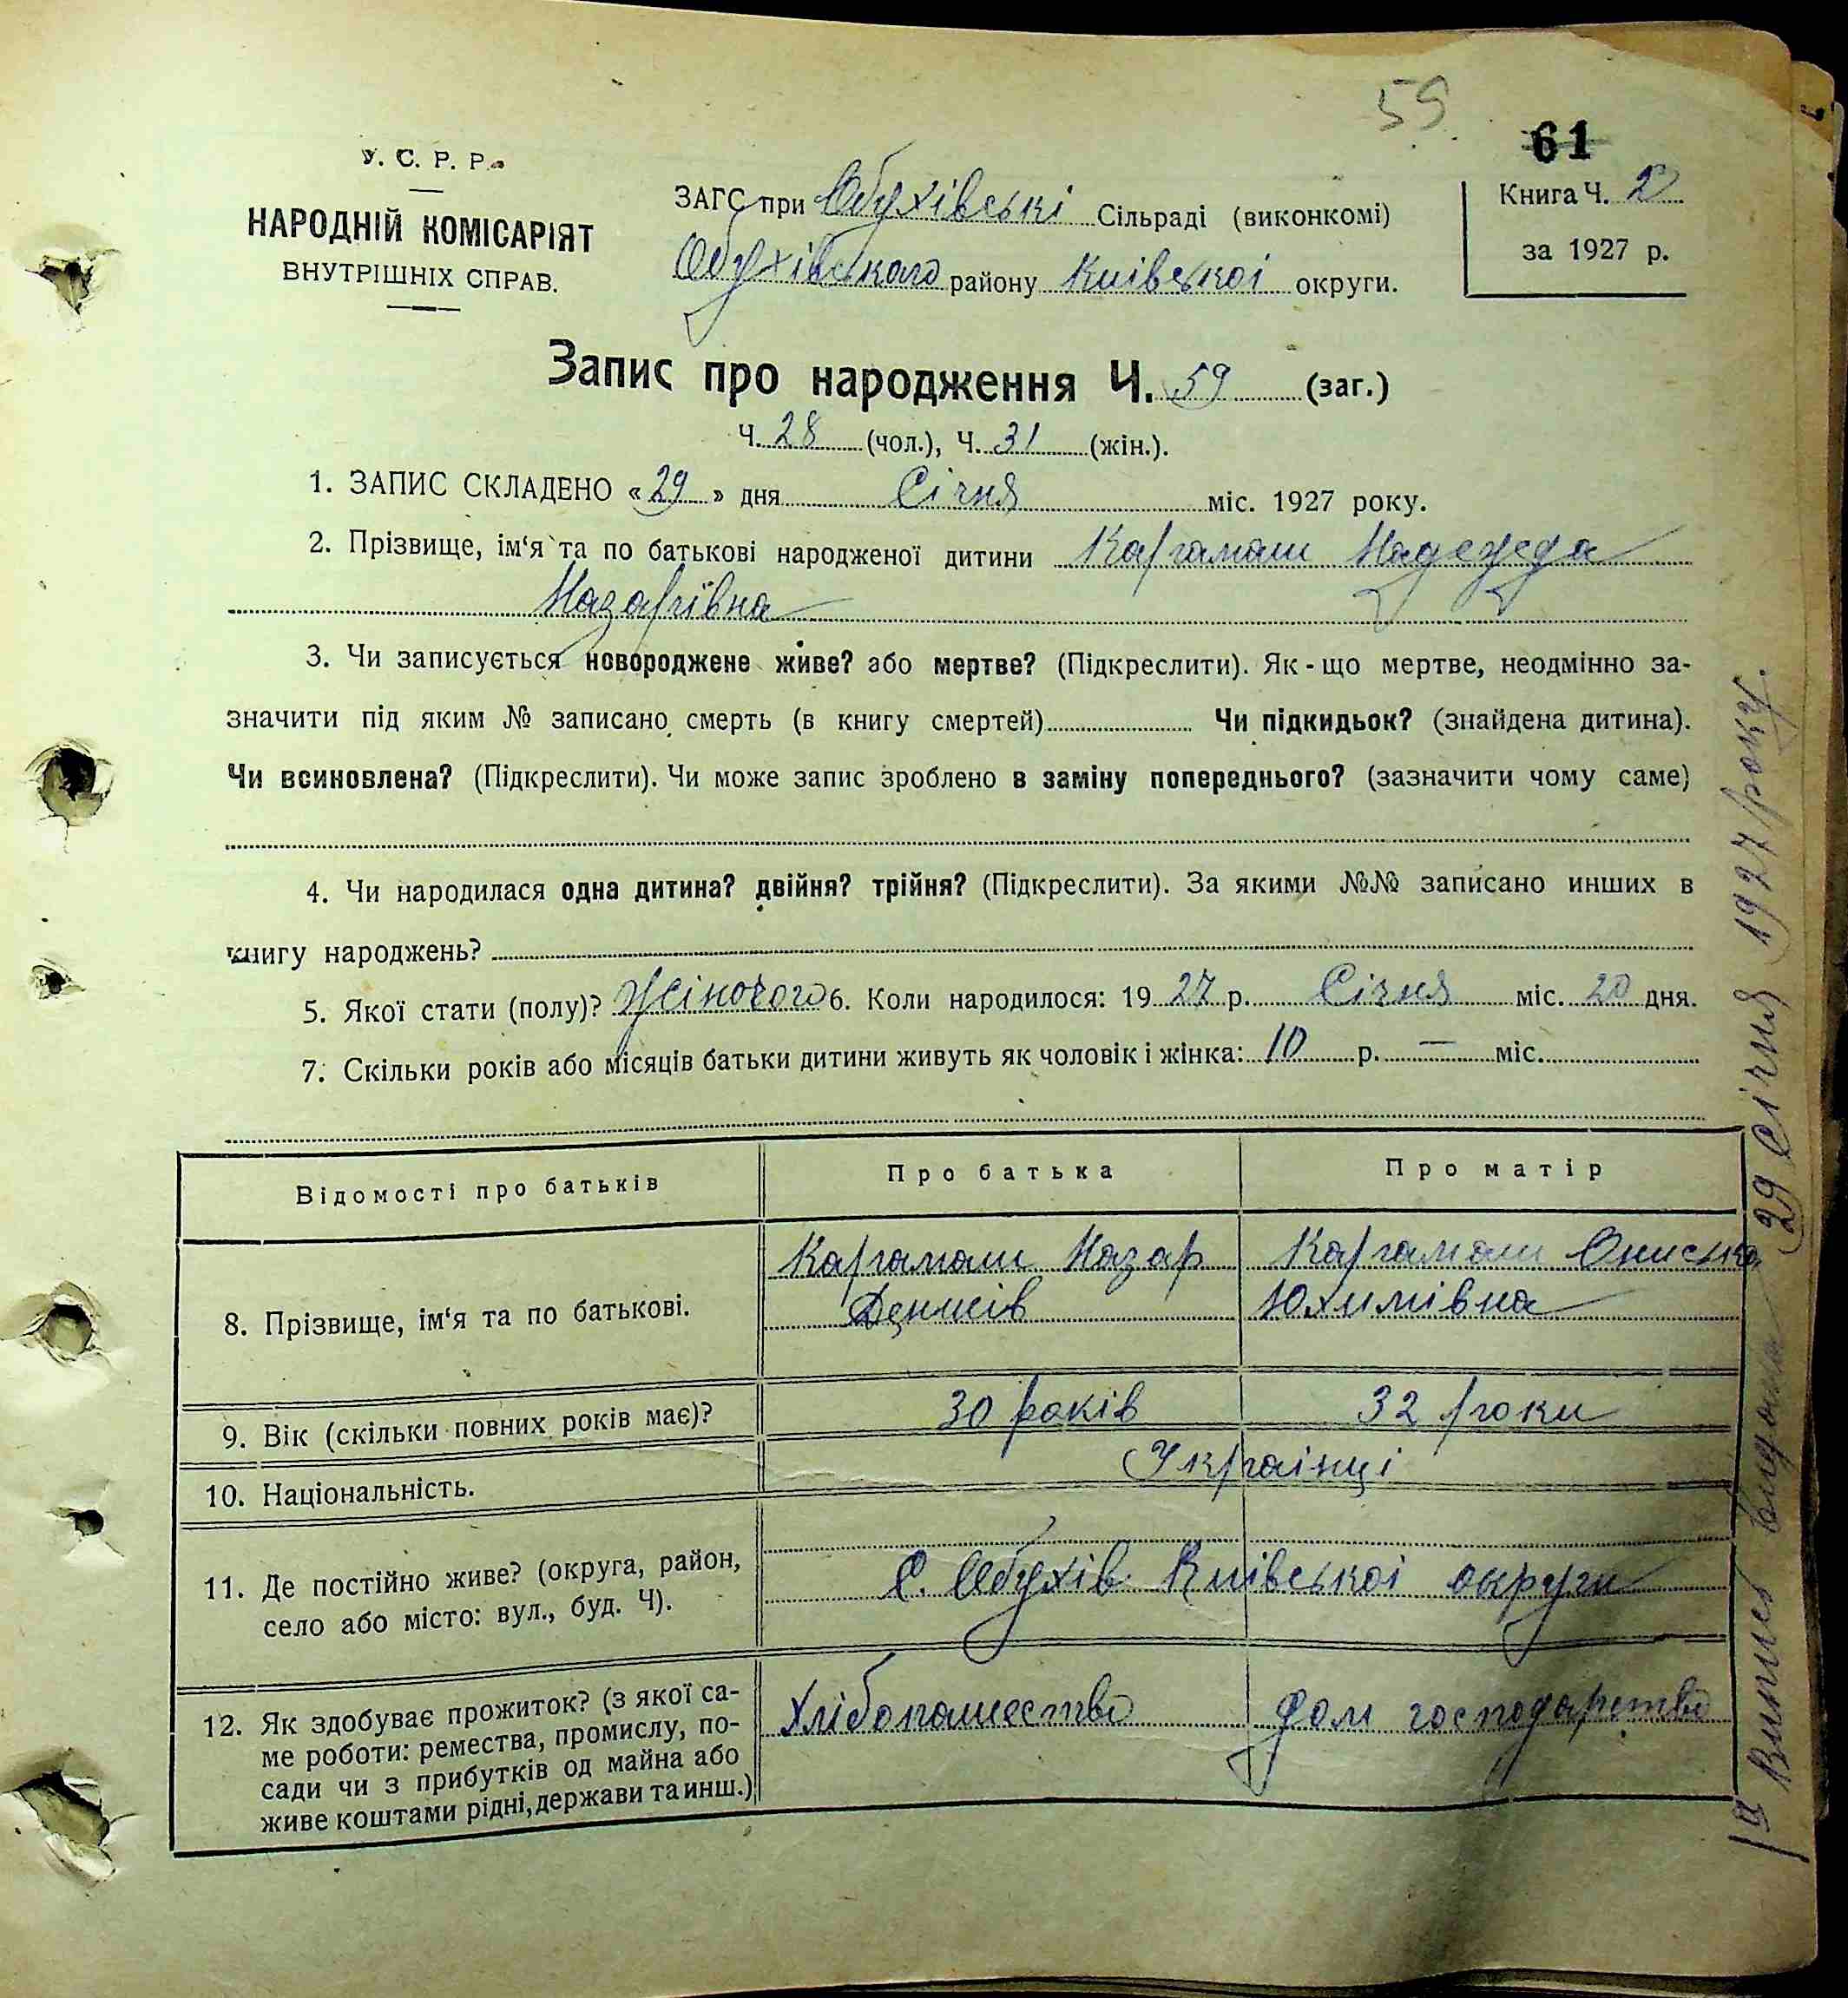 59
61
У. С. Р. Р.
НАРОДНІЙ КОМІСАРІЯТ
ВНУТРІШНІХ СПРАВ.
ЗАГС при Обухівські Сільраді (виконкомі)
Обухівського району Київської округи.
Книга Ч. 2
за 1927 р.
Запис про народження Ч. 59 (заг.)
Ч. 28 (чол.), Ч. 31 (жін.).
1. ЗАПИС СКЛАДЕНО «29» дня Січня міс. 1927 року.
2. Прізвище, ім‘я та по батькові народженої дитини Каргамаш Надежда
Назарівна
3. Чи записується новороджене живе? або мертве? (Підкреслити). Як-що мертве, неодмінно за-
значити під яким № записано смерть (в книгу смертей) Чи підкидьок? (знайдена дитина).
Чи всиновлена? (Підкреслити). Чи може запис зроблено в заміну попереднього? (зазначити чому саме)
4. Чи народилася одна дитина? двійня? трійня? (Підкреслити). За якими №№ записано инших в
книгу народжень?
5. Якої стати (полу)? Жіночого 6. Коли народилося: 1927 р. Січня міс. 20 дня.
7. Скільки років або місяців батьки дитини живуть як чоловік і жінка: 10 р. — міс.
Відомості про батьків Про батька Про матір
8. Прізвище, ім‘я та по батькові.
Каргамаш Назар
Денисів
Каргамаш Ониська
Юхимівна
9. Вік (скільки повних років має)? 30 років 32 роки
10. Національність. Українці
11. Де постійно живе? (округа, район,
село або місто: вул., буд. Ч).
С. Обухів Київської округи
12. Як здобуває прожиток? (з якої са-
ме роботи: ремества, промислу, по-
сади чи з прибутків од майна або
живе коштами рідні, держави та инш.)
Хлібопашество
Дом господарство
Випис видано 29 Січня 1927 року.